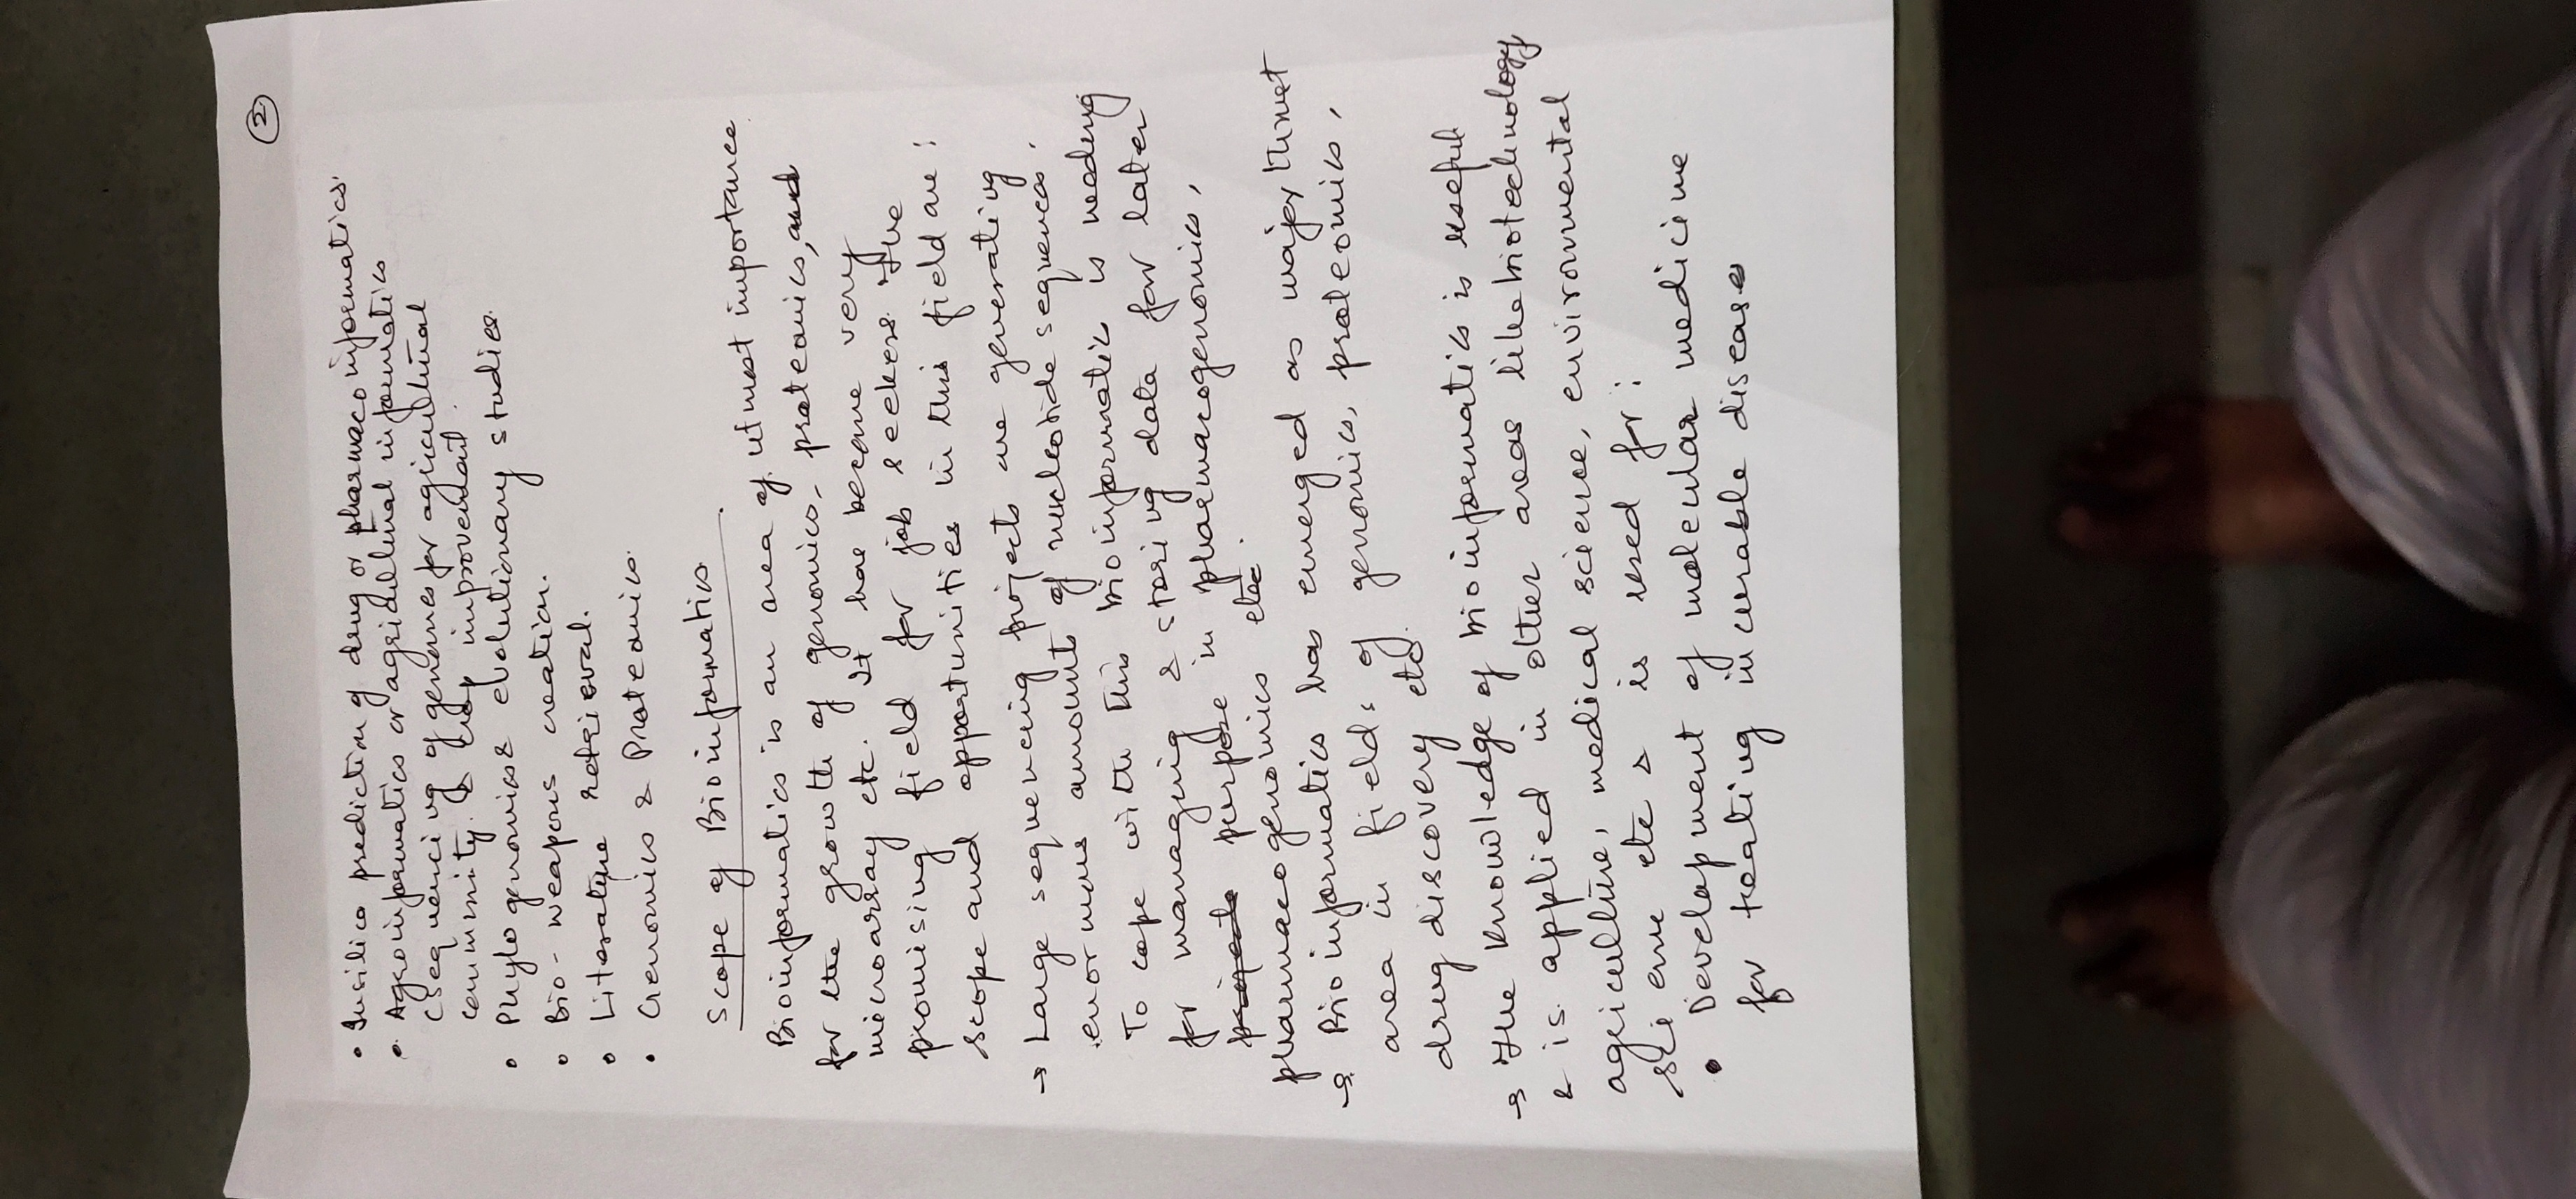 ②
• Insilico prediction of drug or pharmacoinformatics.
• Agroinformatics or agricultural informatics
(sequencing of genomes for agricultural
community & crop improvement.
• Phylogenomics & evolutionary studies.
• Bio-weapons creation.
• Literature retrieval.
• Genomics & Proteomics.
Scope of Bioinformatics.
Bioinformatics is an area of utmost importance
for the growth of genomics, proteomics, and
microarray etc. It have become very
promising field for job seekers. The
scope and opportunities in this field are :
→ Large sequencing projects are generating
enormous amounts of nucleotide sequences.
To cope with this bioinformatic is needing
for managing & storing data for later
purpose in pharmacogenomics,
pharmacogenomics etc.
→ Bioinformatics has emerged as major thrust
area in fields of genomics, proteomics,
drug discovery etc.
→ The knowledge of bioinformatics is useful
& is applied in other areas like biotechnology
agriculture, medical science, environmental
science etc & is used for :
• Development of molecular medicine
for treating incurable diseases